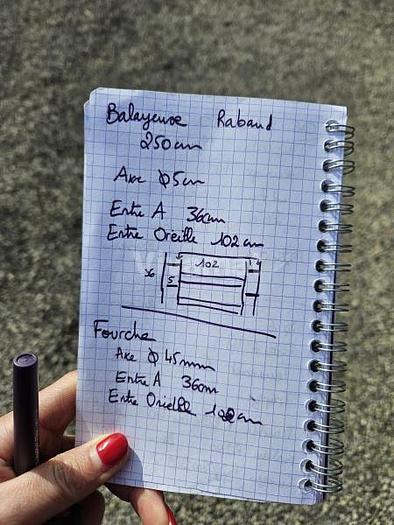 Balayeuse Rabaud
250cm
Axe φ5cm
Entre A 36cm
Entre Oreille 102cm
102
36
5
Fourche
Axe φ 45mm
Entre A 36cm
Entre Oreille